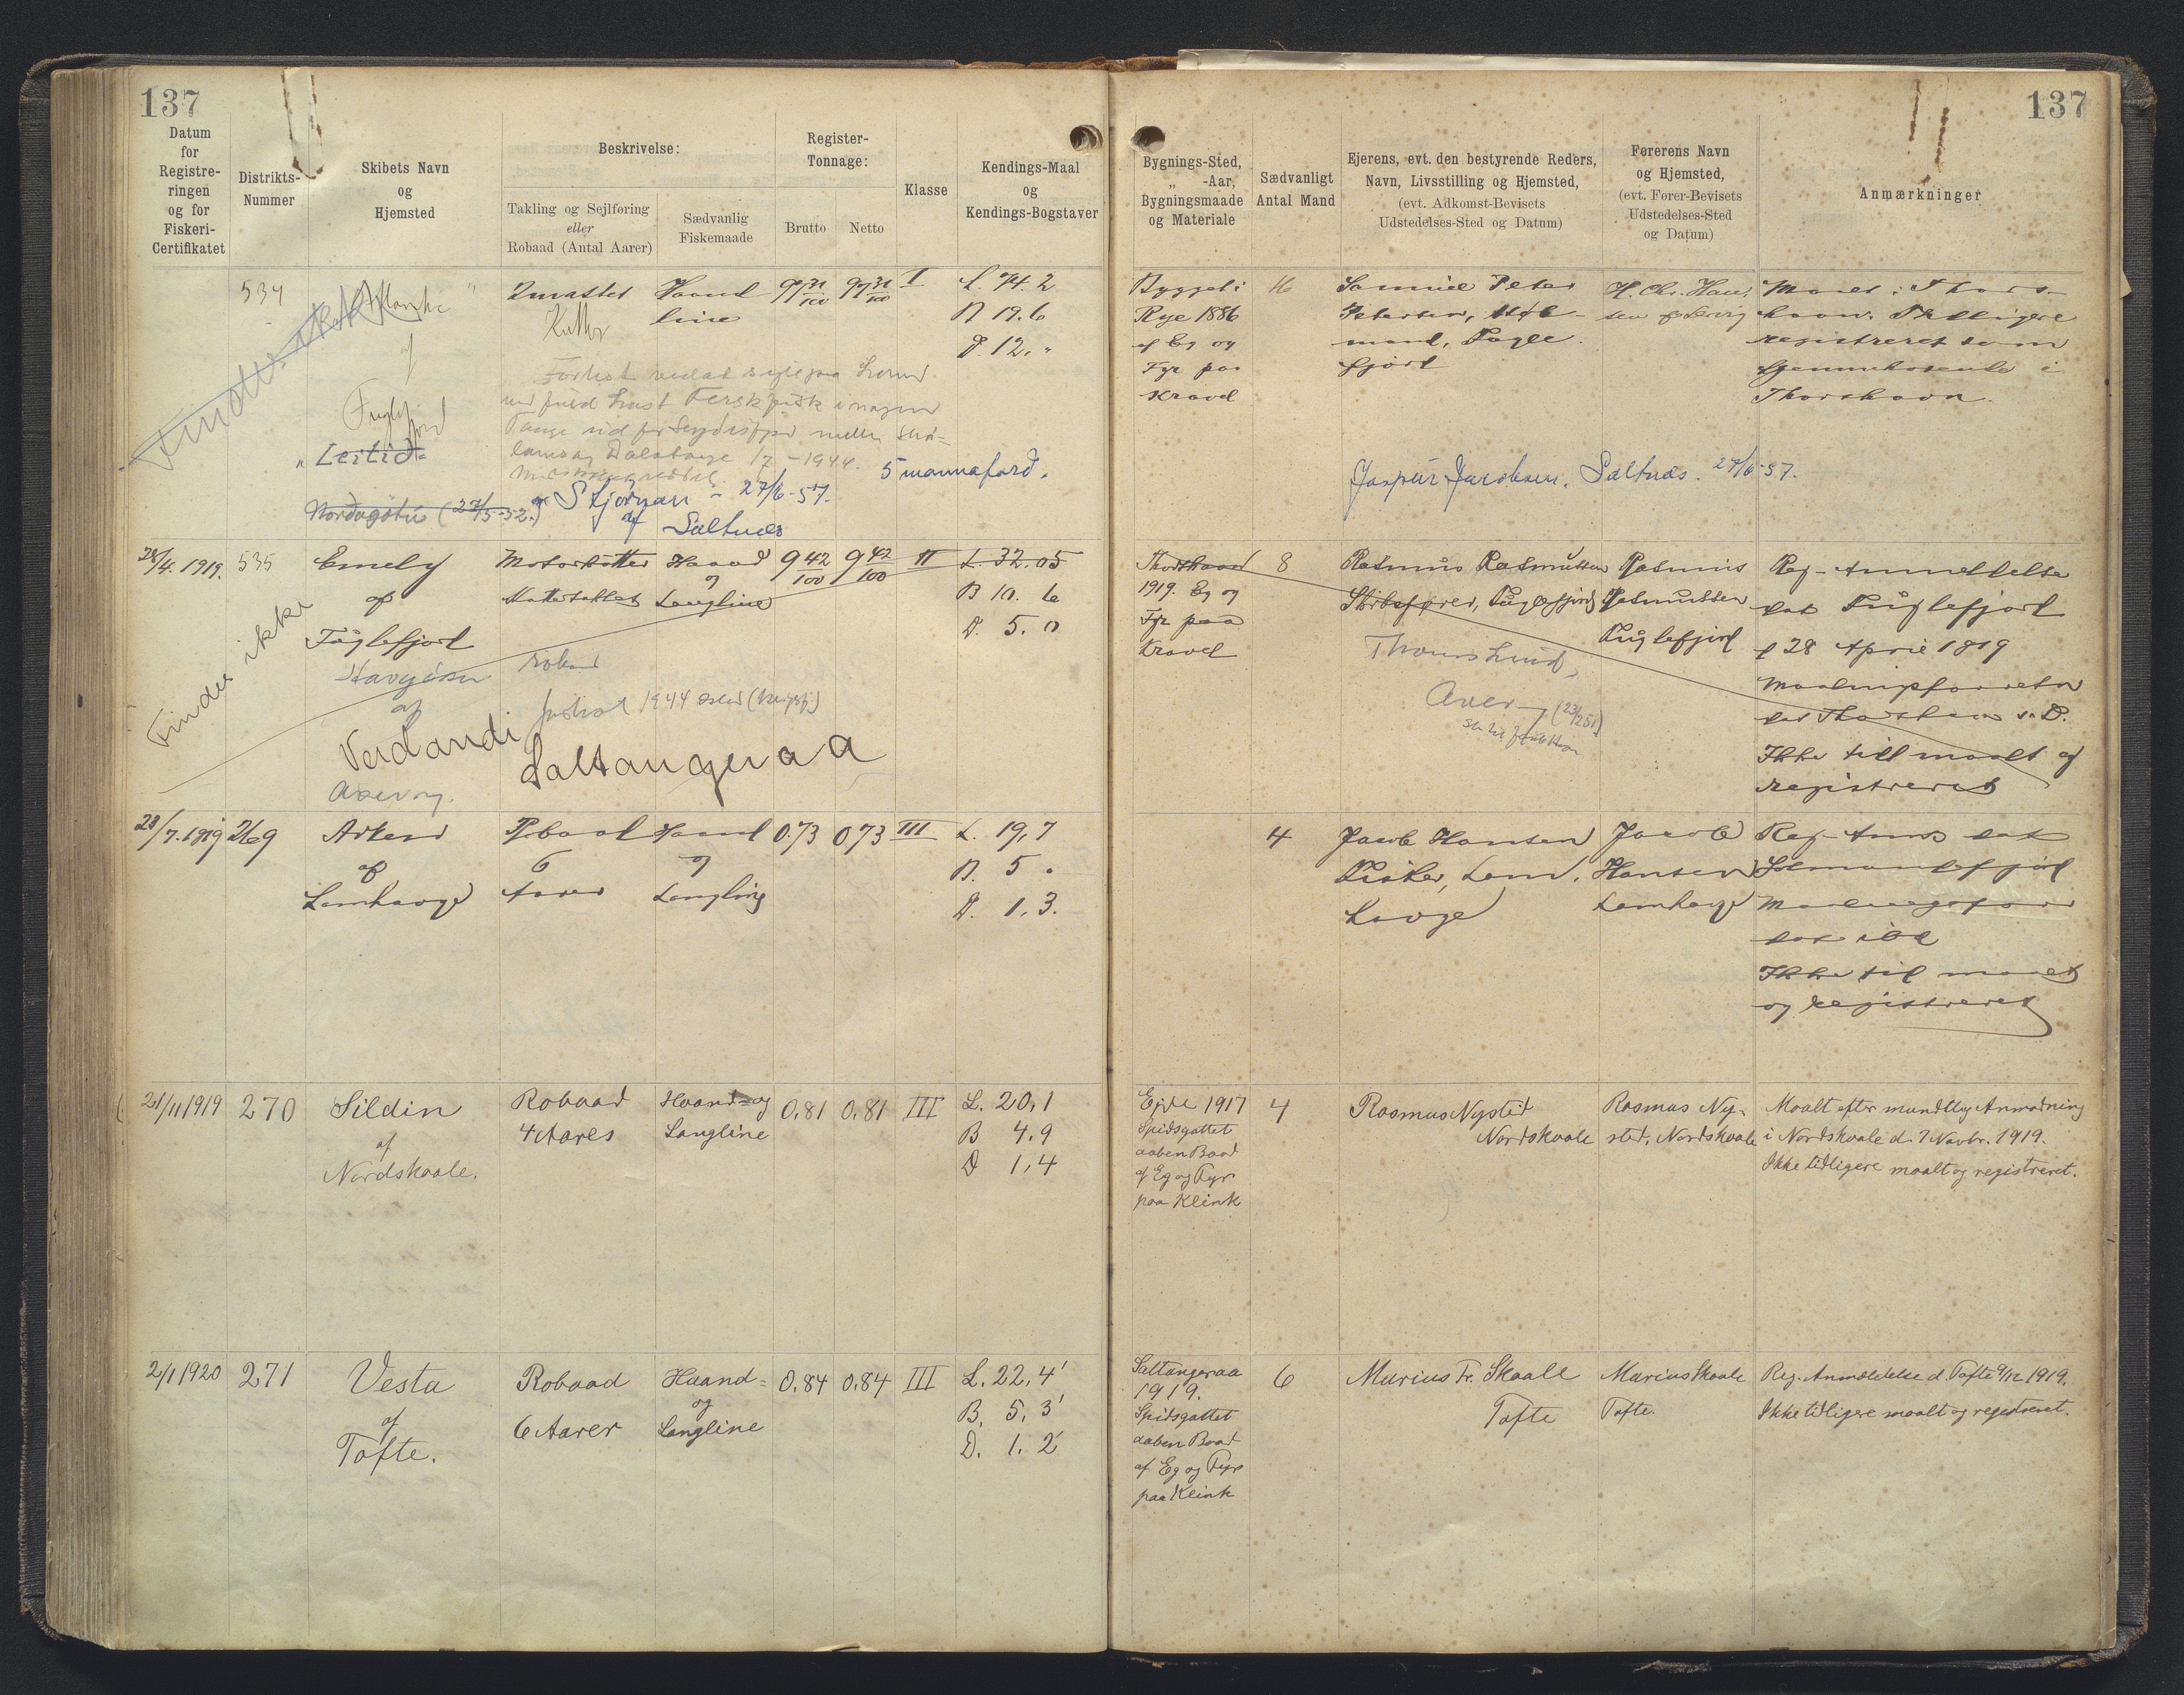 137
137
Datum
for
Registre-
ringen
og for
Fiskeri-
Certifikatet
Distrikts-
Nummer
Skibets Navn
og
Hjemsted
Beskrivelse:
Takling og Sejlføring
eller
Robaad (Antal Aarer)
Sædvanlig
Fiskemaade
Register-
Tonnage:
Brutto
Netto
Klasse
Kendings-Maal
og
Kendings-Bogstaver
Bygnings-Sted,
„ -Aar,
Bygningsmaade
og Materiale
Sædvanligt
Antal Mand
Ejerens, evt. den bestyrende Reders,
Navn, Livsstilling og Hjemsted,
(evt. Adkomst-Bevisets
Udstedelses-Sted og Datum)
Førerens Navn
og Hjemsted,
(evt. Fører-Bevisets
Udstedelses-Sted
og Datum)
Anmærkninger
534
af
Fuglefjord
"Leitid"
Nordagøtu (27/5-52.)
2mastet
Kutter
Haand
line
I
L. 74. 2
B 19. 6
D. 12. "
5 mannafard.
"Stjørnan" - 27/6-57.
af Saltnes
Bygget i
Rye 1886
af Eg og
Fyr paa
Kravel
16
Samuel Peter
Petersen, Kjøb-
mand, Fugle
fjord
Jaspur Jacobsen, Saltnes. 27/6-57.
H. Chr. Han-
sen
Maalt i Thors-
havn. Tidligere
registreret som
hjemmehørende i
Thorshavn.
28/4. 1919.
535
Finder ikke
Emely
af
Fuglefjord
af
Verdandi
Saltangeraa
Motorkutter
Haand
og
Langline
9 42/100
9 42/100
II
L. 32. 05
B 10. 6
D. 5. 0
Thorshavn
1919. Eg og
Fyr paa
Kravel
8
Rasmus Rasmussen
Skibsfører, Fuglefjord
Rasmus
Rasmussen
Fuglefjord
Reg-Anmeldelse
dat Fuglefjord
d 28 April 1919
dat Thorshavn s. D.
Ikke till maalt og
registreret
28/7. 1919
269
af
Lamhauge
Robaad
6
Aarer
Haand
og
Langline
0.73
0,73
III
L. 19,7
B. 5 "
D. 1,3.
4
Jacob Hansen
Fisker, Lam-
hauge
Jacob
Hansen
Lamhauge
Reg-Anm dat
dat ibd
Ikke til maalt
og registreret
21/11 1919
270
Sildin
af
Nordskaale.
Robaad
4 Aares
Haand- og
Langline
0,81
0,81
III
L. 20,1
B 4.9
D 1,4
Ejde 1917
Spidsgattet
aaben Baad
af Eg og Fyr
paa Klink
4
Rasmus Nysted
Nordskaale
Rasmus Ny-
sted, Nordskaale
Maalt efter mundtlig Anmodning
i Nordskaale d. 7 Novbr. 1919.
Ikke tidligere maalt og registreret.
2/1 1920
271
Vesta
af
Tofte.
Robaad
6 Aarer
Haand-
og
Langline
0,84
0,84
III
L. 22,4'
B. 5, 3'
D. 1. 2'
Saltangeraa
1919.
Spidsgattet
aaben Baad
af Eg og Fyr
paa Klink
6
Marius Fr. Skaale
Tofte
Marius Skaale
Tofte.
Reg. Anmeldelse d. Tofte 9/12 1919.
Ikke tidligere maalt og registreret.